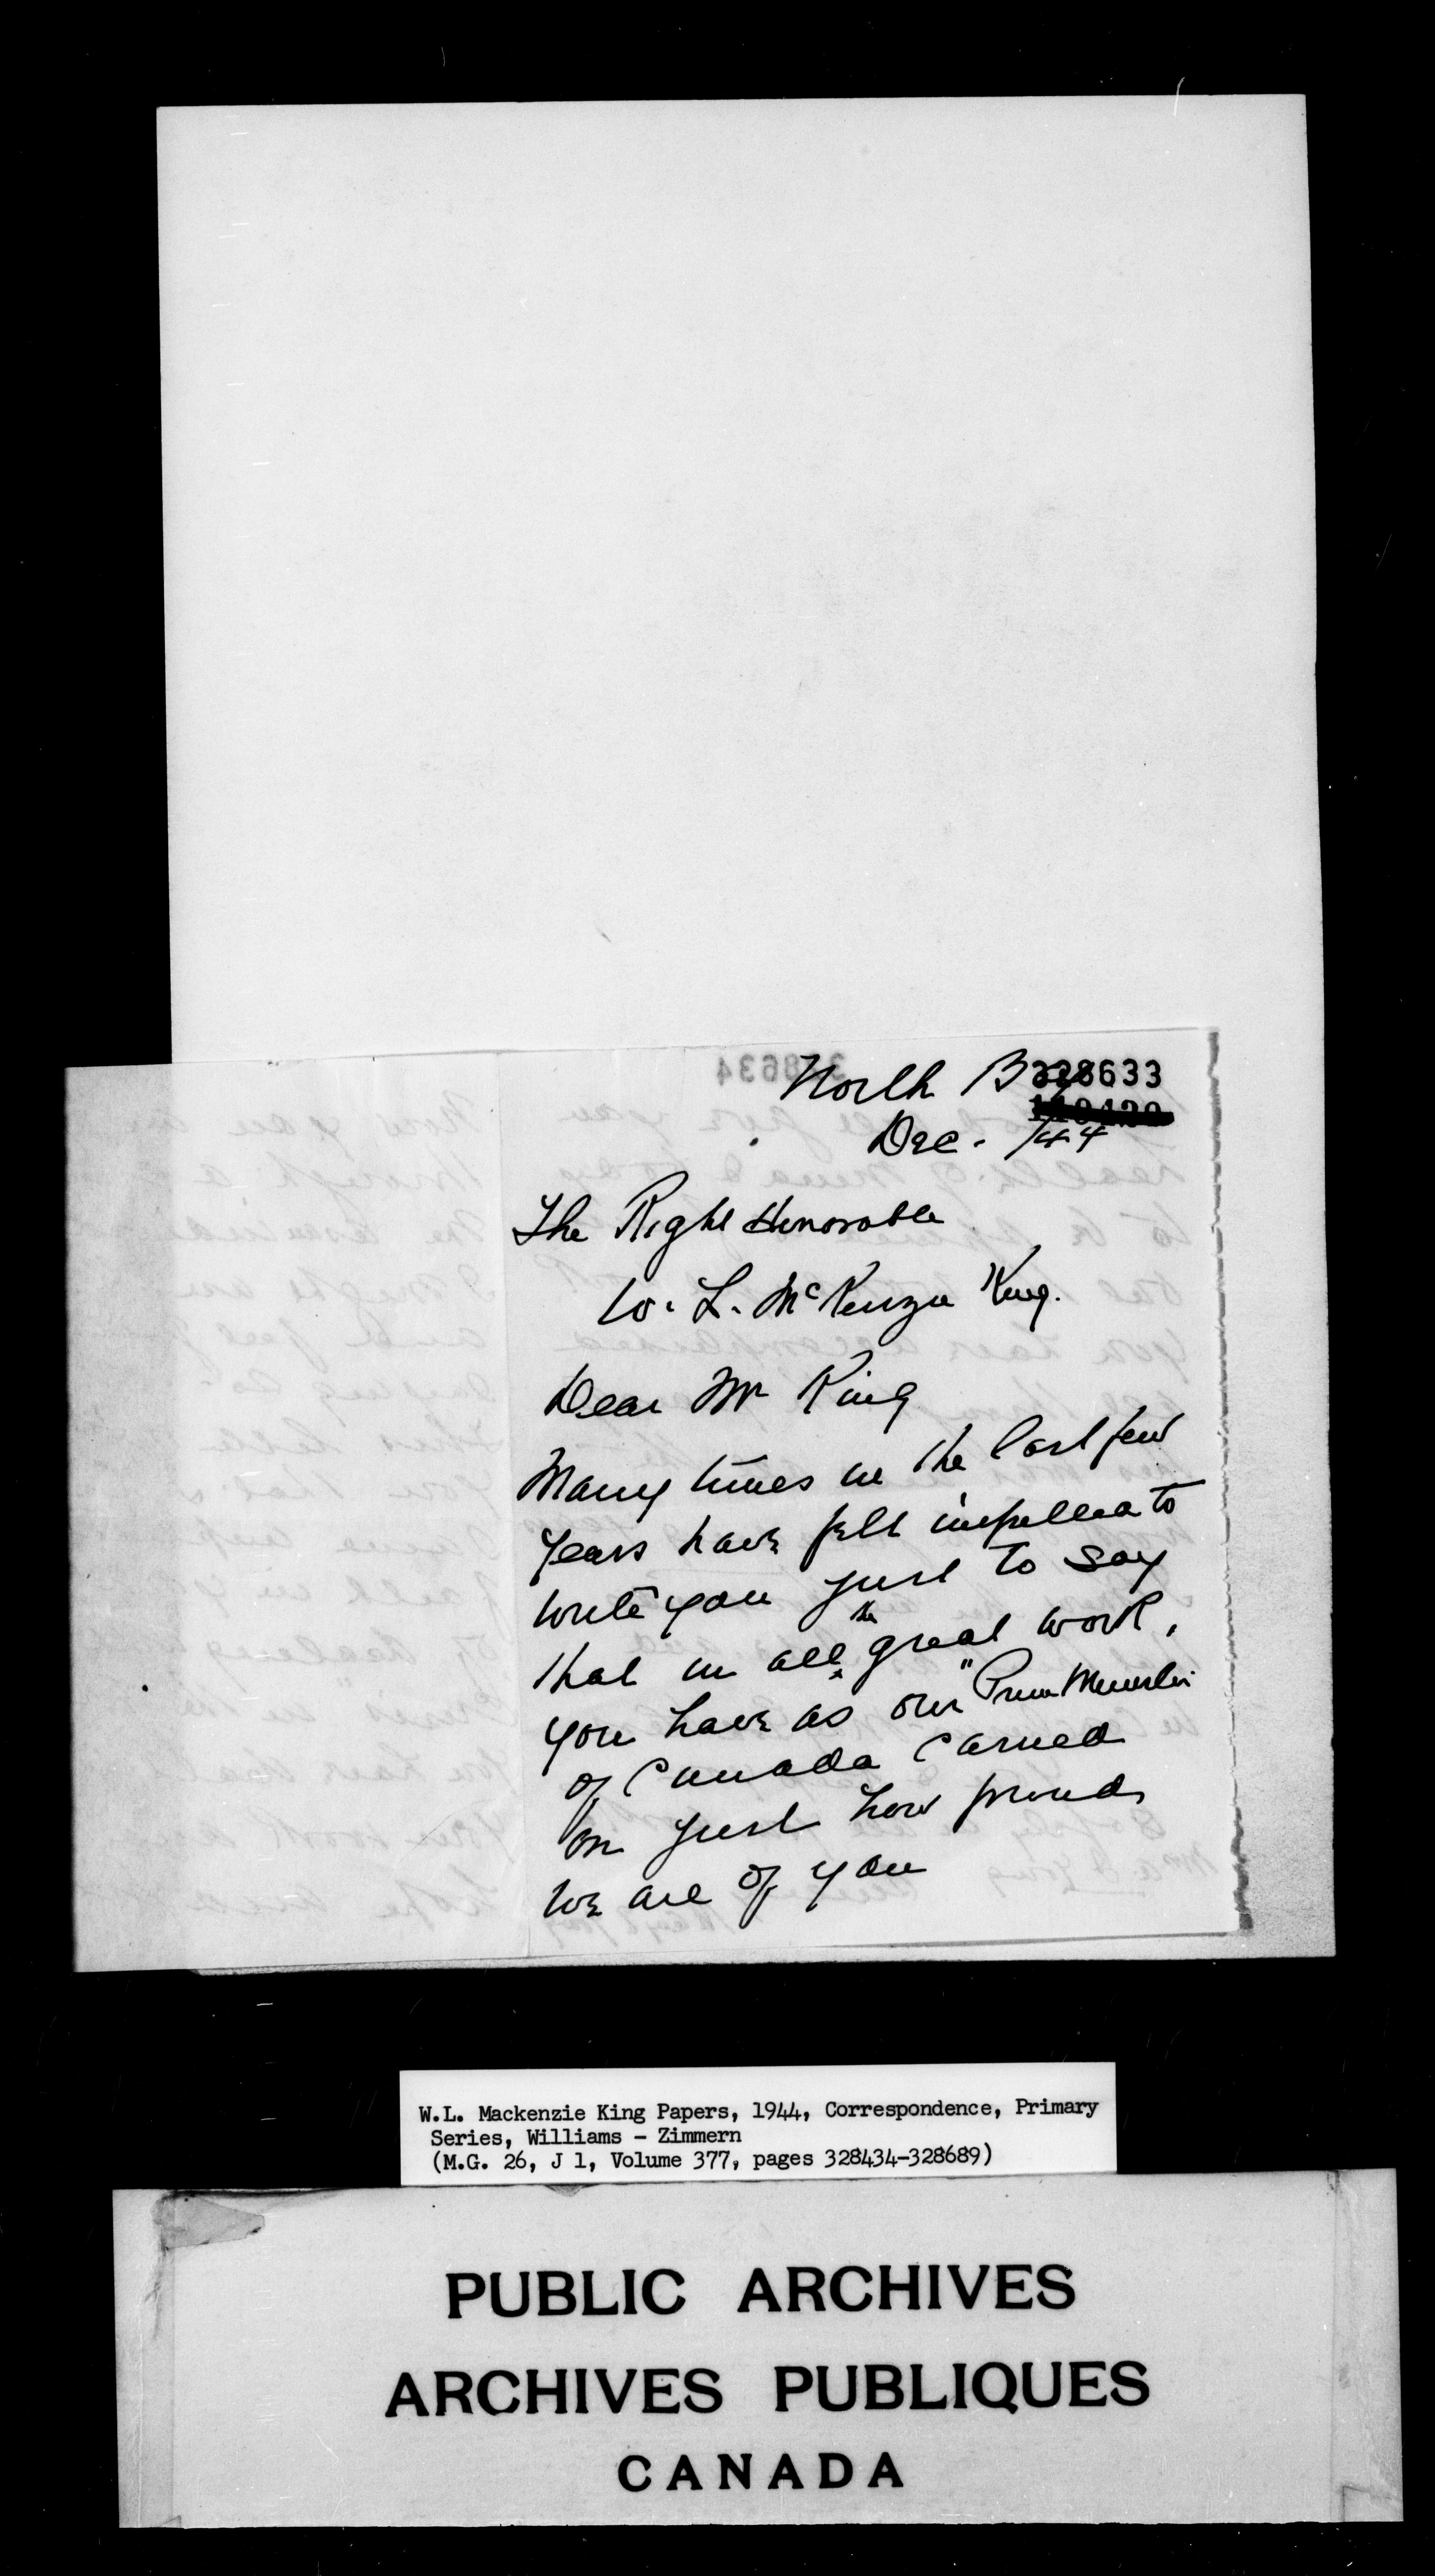 328633
North Bay
Dec. /44
The Right Honorable
W. L. McKenzie King.
Dear Mr King
Many times in the last few
years have felt impelled to
write you just to say
that in all the great work,
you have as our "Prime Minister
of Canada carried
on just how proud
we are of you
W.L. Mackenzie King Papers, 1944, Correspondence, Primary
Series, Williams - Zimmern
(M.G. 26, J 1, Volume 377, pages 328434-328689)
PUBLIC ARCHIVES
ARCHIVES PUBLIQUES
CANADA